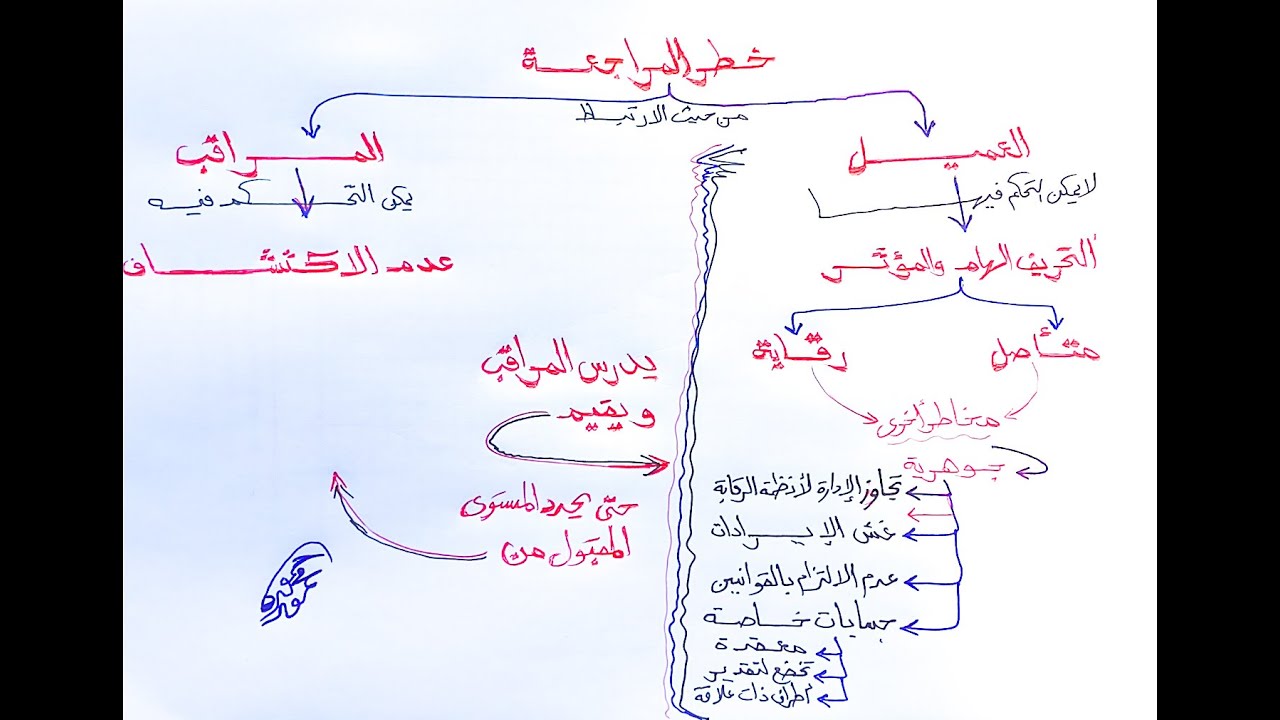 خطر المراجعة
من حيث الارتباط
العميل
لا يمكن التحكم فيه
التحريف الهام والمؤثر
متأصل
رقابة
مخاطر أخرى
جوهرية
تجاوز الإدارة لأنظمة الرقابة
غش الإيرادات
عدم الالتزام بالقوانين
حسابات خاصة
معقدة
تخضع لتقدير
أطراف ذات علاقة
المراقب
يمكن التحكم فيه
عدم الاكتشاف
يدرس المراقب
ويقيم
حتى يحدد المستوى
المقبول من